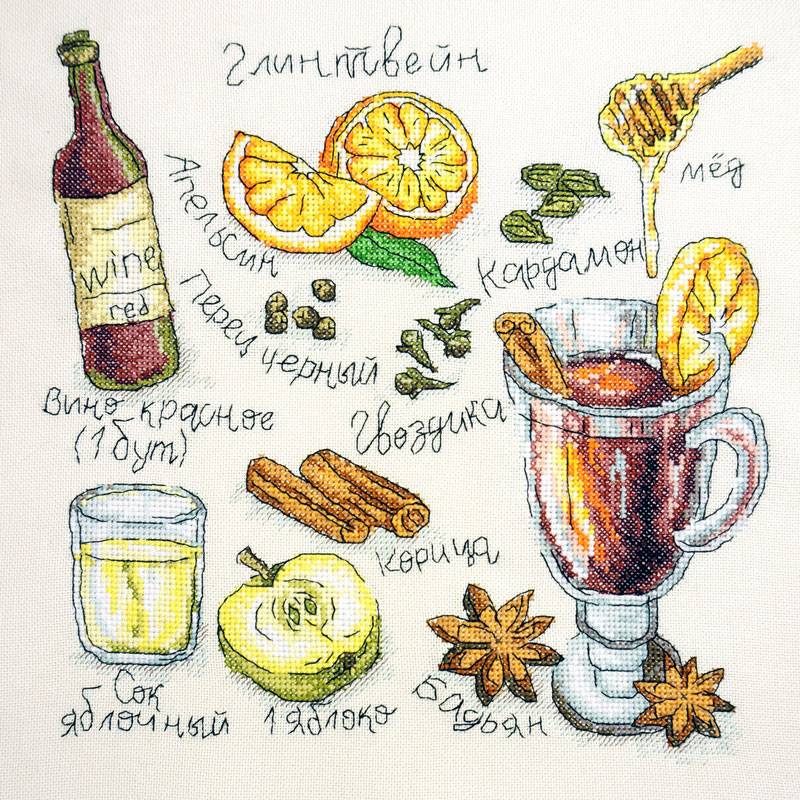 Глинтвейн
мёд
Апельсин
Кардамон
wine
red
Перец черный
Вино красное
(1 бут)
Гвоздика
Корица
Сок
яблочный
1 яблоко
Бадьян